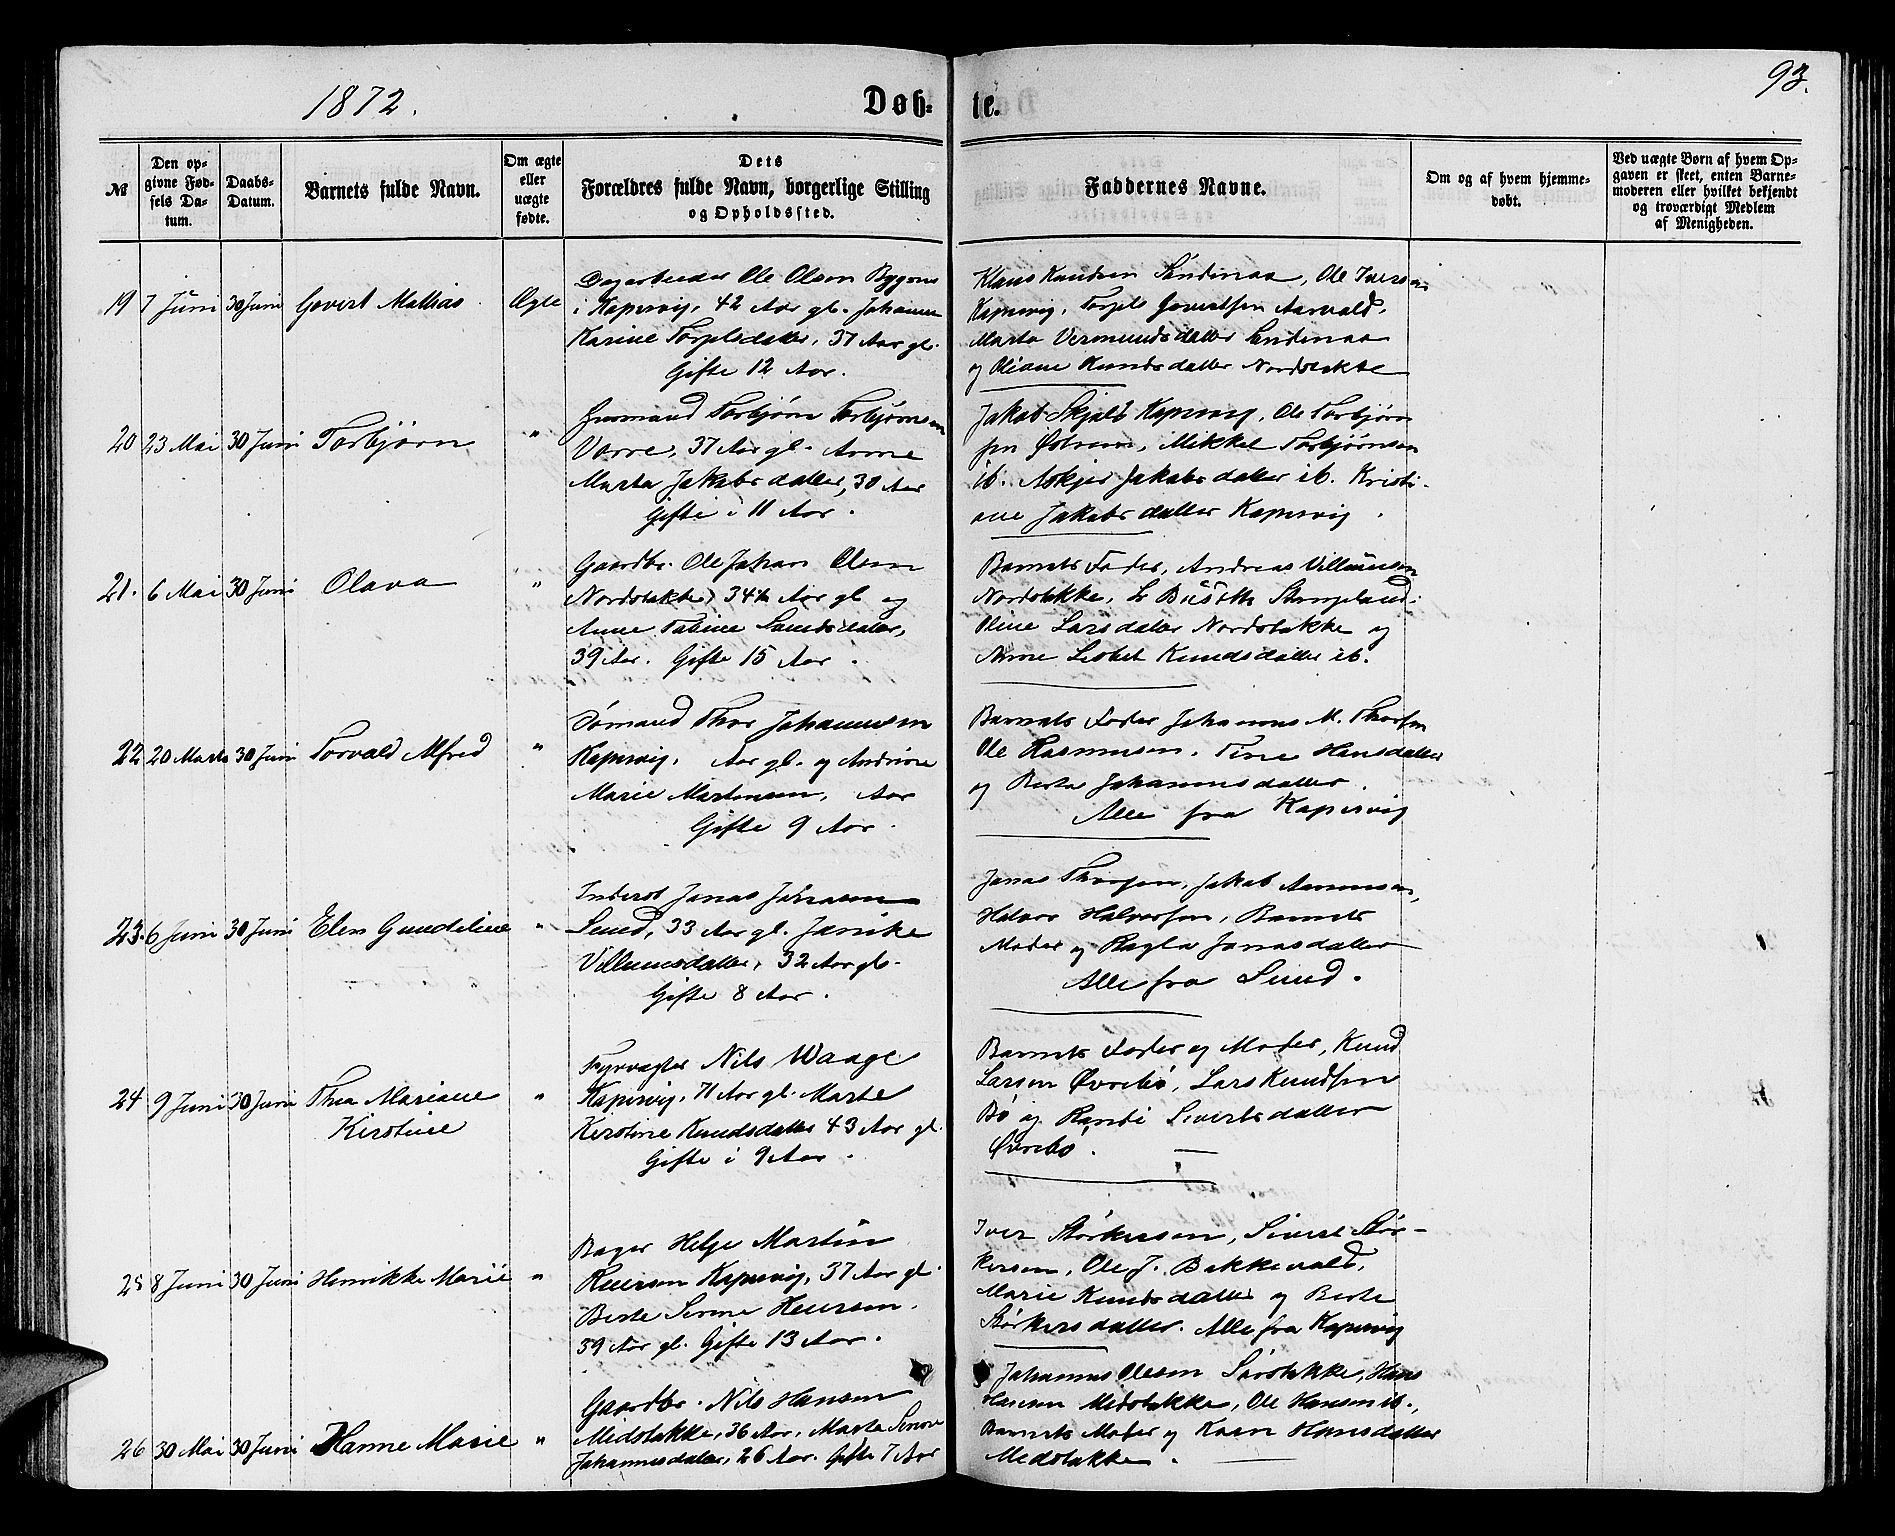 1872.
Døb-
te.
93.
№
Den op-
givne Fød-
sels Da-
tum.
Daabs-
Datum.
Barnets fulde Navn.
Om ægte
eller
uægte
fødte.
Dets
Forældres fulde Navn, borgerlige Stilling
og Opholdssted.
Faddernes Navne.
Om og af hvem hjemme-
døbt.
Ved uægte Børn af hvem Op-
gaven er skeet, enten Barne-
moderen eller hvilket bekjendt
og troværdigt Medlem
af Menigheden.
19 7 Juni 30 Juni Govert Mathias. Ægte
Ole Olsen Bygnes
i Kapervig, 42 Aar gl. Johanne
Karine Torgelsdatter, 37 Aar gl.
Gifte 12 Aar.
Klaus Knudsen Sandenaa, Ole Iversen
Kapervig, Torgels Govertsen Aarvald,
Marta Vermundsdatter Sandenaa
og Oliane Knudsdatter Nordstokke
20 23 Mai 30 Juni Torbjørn "
Husmand Torbjørn Torbjørnsen
Vorre, 37 Aar gl. Anne
Marta Jakobsdatter, 30 Aar
Gifte i 11 Aar.
Jakob Skjold Kapervig, Ole Torbjørn
sen Østrem, Mikkel Torbjørnsen
ib. Askjer Jakobsdatter ib. Kristi-
ane Jakobsdatter Kapervig.
21. 6 Mai 30 Juni Olava "
Gaardbr. Ole Johan Olsen
Nordstokke, 34 Aar gl og
Anne Tabine Samdsdatter,
39 Aar. Gifte 15 Aar.
Barnets Fader, Andreas Villumsen
Nordstokke, L. Stangeland.
Oline Larsdatter Nordstokke og
Anne Lisbet Knudsdatter ib.
22 20 Marts 30 Juni Torvald Alfred "
Sømand Thor Johannesen
Kapervig, Aar gl. og Andrine
Marie Mortensen, Aar
Gifte 9 Aar.
Barnets Fader Johannes M. Thorsen
Ole Rasmusen. Tine Hansdatter
og Berta Johannesdatter.
Alle fra Kapervig
23. 6 Juni 30 Juni Elen Gundeline "
Inderst Jonas Johnsen
Sund, 33 Aar gl. Janike
Villumsdatter, 32 Aar gl.
Gifte 8 Aar.
Jonas Thorsen, Jakob Aanensen,
Halvor Halvorsen, Barnets
Moder og Ragla Jonasdatter
Alle fra Sund.
24 9 Juni 30 Juni Thea Mariane "
Kirstine
Fyrvogter Nils Waage
Kapervig, 71 Aar gl. Marte
Kirstine Knudsdatter 43 Aar gl.
Gifte i 9 Aar.
Barnets Fader og Moder, Knud
Larsen Øvrebø, Lars Knudsen
Bø og Randi Sivertsdatter
Øvrebø.
25 8 Juni 30 Juni Henrikke Marie "
Bager Helje Martin
Reiersen Kapervig, 37 Aar gl.
Berte Serine Heiersen.
39 Aar gl. Gifte 13 Aar.
Iver Størkersen, Sivert Stør-
kersen, Ole J. Bakkevold,
Marie Knudsdatter og Berte
Størkersdatter. Alle fra Kapervig
26 30 Mai 30 Juni Hanne Marie "
Gaardbr. Nils Hansen
Midstokke, 36 Aar, Marta Serine
Johannesdatter, 26 Aar. Gifte 7 Aar
Johannes Olesen Sørstokke, Hans
Hansen Midstokke, Ole Hansen ib.,
Barnets Moder og Karen Hansdatter
Medstokke.